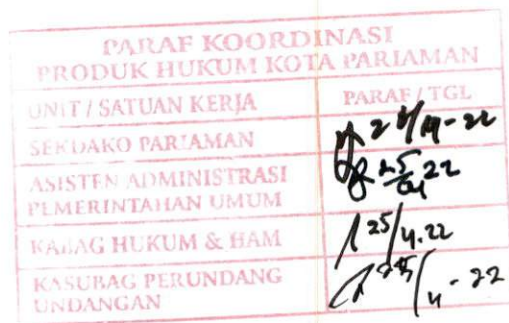 PARAF KOORDINASI
PRODUK HUKUM KOTA PARIAMAN
UNIT / SATUAN KERJA PARAF / TGL
SEKDAKO PARIAMAN
ASISTEN ADMINISTRASI 25/04 22
PEMERINTAHAN UMUM
KABAG HUKUM & HAM 25/4.22
KASUBAG PERUNDANG
UNDANGAN /4-22